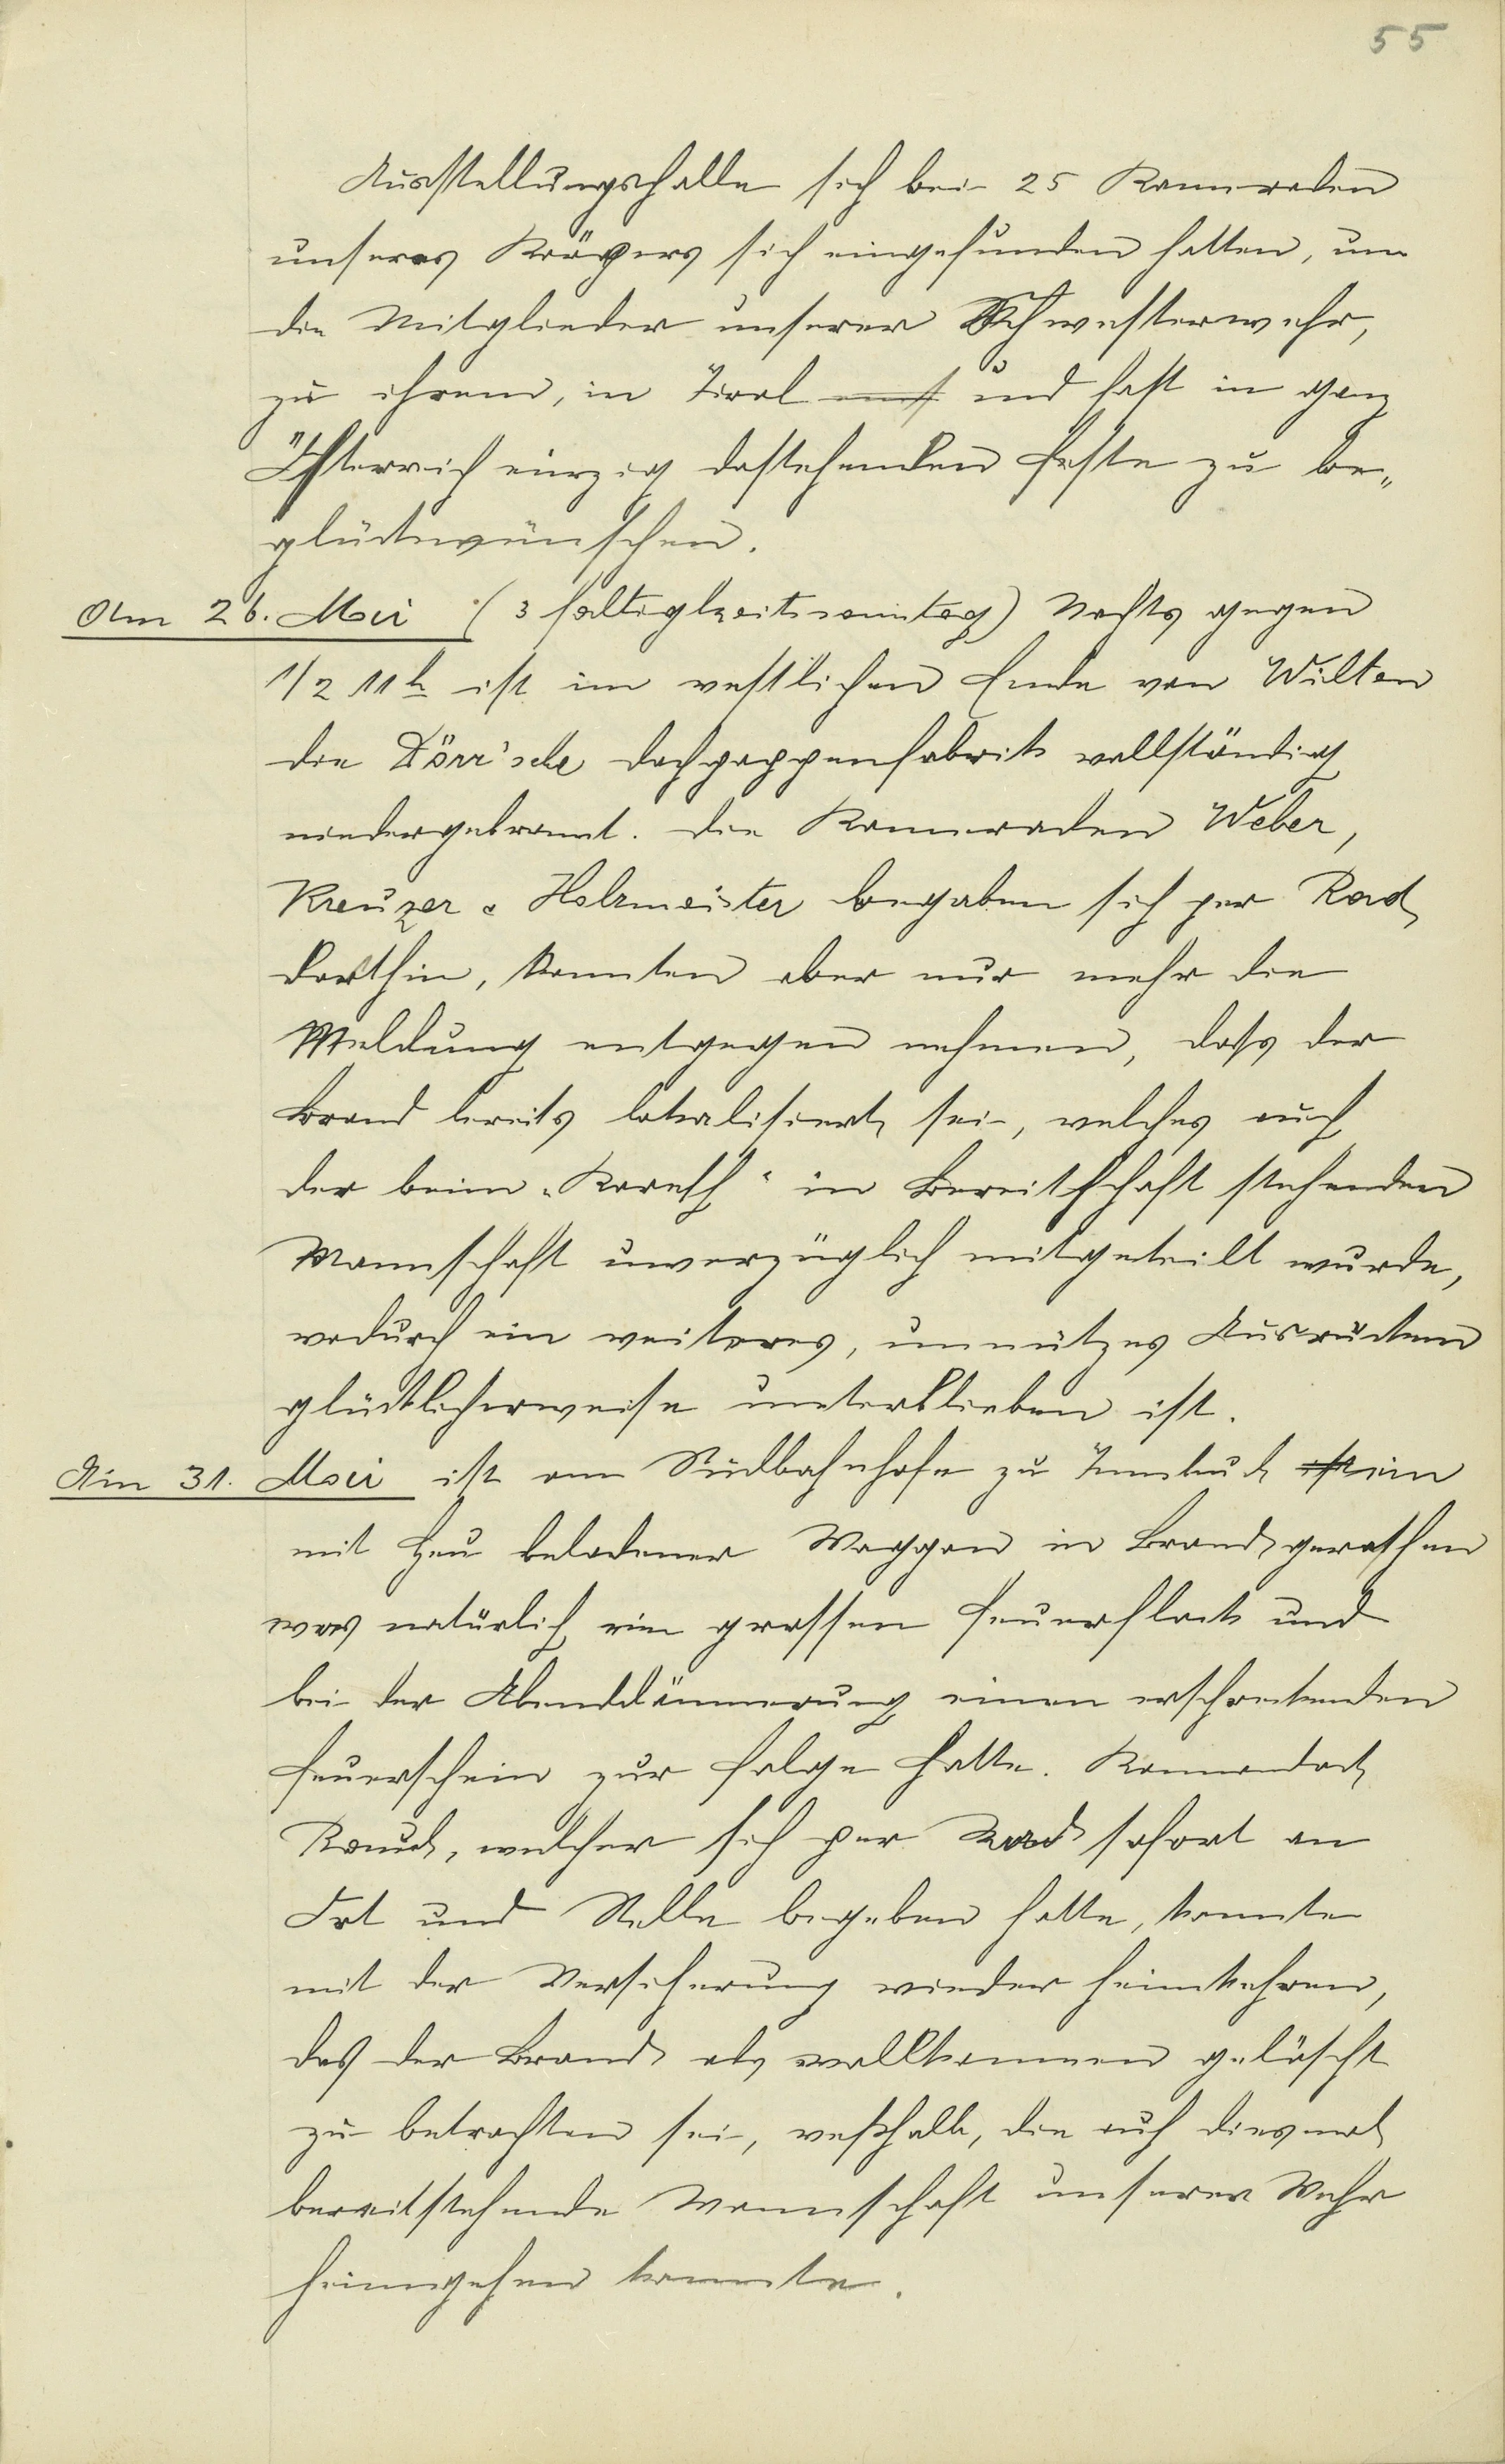 55
Ausstellungshalle sich bei 25 Kameraden
unseres Körpers sich eingefunden hatten, um
die Mitglieder unserer Schwesterwehr,
zu ihrem, in Tirol und fast in ganz
Österreich einzig dastehenden Feste zu be„
glückwünschen.
Am 26. Mai (3 faltigkeitssonntag) Nachts gegen
1/2 11 h ist im westlichen Ende von Wilten
die Dörr'sche Dachpappenfabrik vollständig
niedergebrannt. Die Kameraden Weber,
Kreuzer & Holzmeister begaben sich per Rad
dorthin, konnten aber nur mehr die
Meldung entgegen nehmen, dass der
Brand bereits lokalisiert sei, welches auch
der beim „Koreth" in Bereitschaft stehenden
Mannschaft unverzüglich mitgeteilt wurde,
wodurch ein weiteres, unnützes Ausrücken
glücklicherweise unterblieben ist.
Am 31. Mai ist am Südbahnhofe zu Innsbruck ein
mit Heu beladener Waggon in Brand gerathen
was natürlich ein grossen Feuerflack und
bei der Abenddämmerung einen erschreckenden
Feuerschein zur Folge hatte. Kommandant
Rauch, welcher sich per Rad sofort an
Ort und Stelle begeben hatte, konnte
mit der Versicherung wieder heimkehren,
daß der Brand als vollkommen gelöscht
zu betrachten sei, weßhalb, die auch diesmal
bereitstehende Mannschaft unserer Wehr
heimgehen konnte.